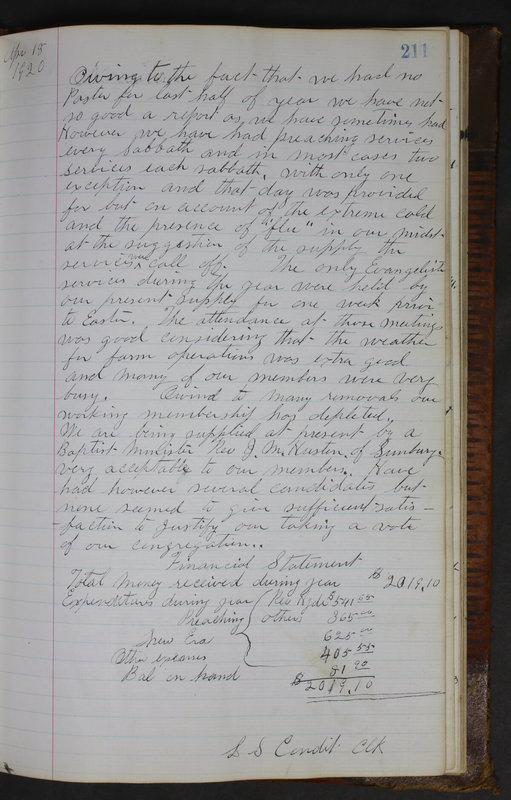 211
Apr 18
1920
Owing to the fact that we had no
Pastor for last half of year we have not
so good a report as we have sometimes had
However we have had preaching services
every Sabbath and in most cases two
services each sabbath, with only one
exception and that day was provided
for but on account of the extreme cold
and the presence of "flu" in our midst
at the suggestion of the supply the
services were call off. The only Evangelistic
services during the year were held by
our present supply for one week prior
to Easter. The attendance at those meetings
was good considering that the weather
for farm operations was extra good
and many of our members were very
busy. Owind to many removals our
working membership has depleted.
We are being supplied at present by a
Baptist Minister Rev J. M. of Sunbury.
very acceptably to our members. Have
had however several candidates but
none seemed to give sufficient satis-
faction to justify our taking a vote
of our congregation..
Financial Statement
Total money received during year $2019.10
Expenditures during year ( Rev $541 55
Preaching ( others 365 00
New Era 625 00
Other expenses 405 55
Bal in hand 81 90
$2019.10
L S Condit Clk